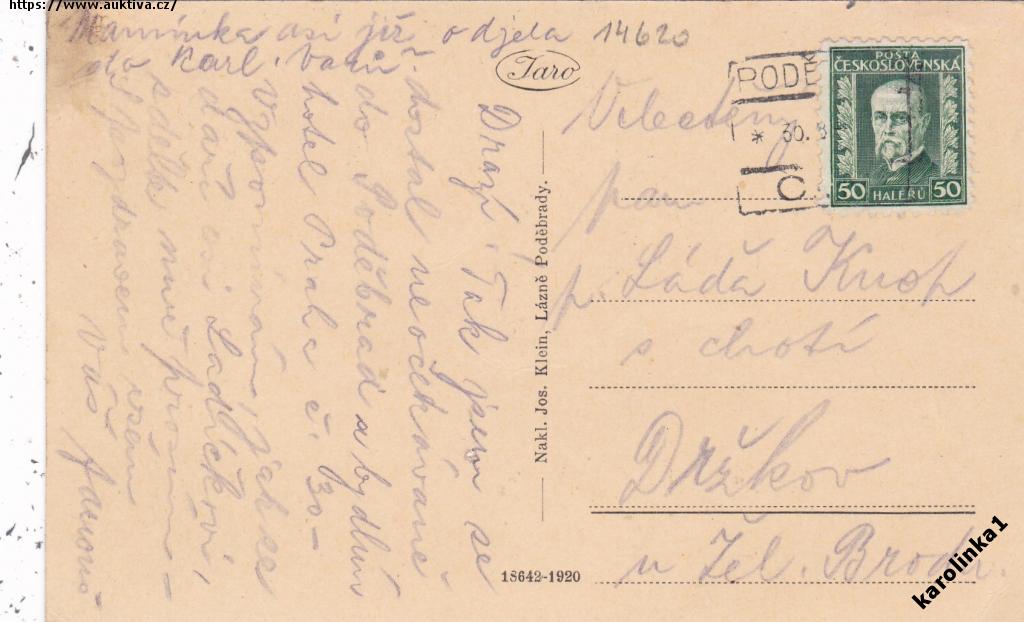 https://www.auktiva.cz/
Maminka asi již odjela 14620
do Karl. Varů
Drazí! Tak jsem se
dostal neočekávaně
do Poděbrad a bydlím
hotel Praha č. 30-
Vzpomínám, jak se
daří asi Ladíčkovi,
sdělte mně prosím-
S pozdravem všem
Váš
Taro
Nakl. Jos. Klein, Lázně Poděbrady.
18642-1920
PODĚ
* 30.
POŠTA
ČESKOSLOVENSKÁ
50 HALÉŘŮ 50
Velectěný
pan
p. Láďa Knop
s chotí
Držkov
u Žel. Brodu.
karolinka1